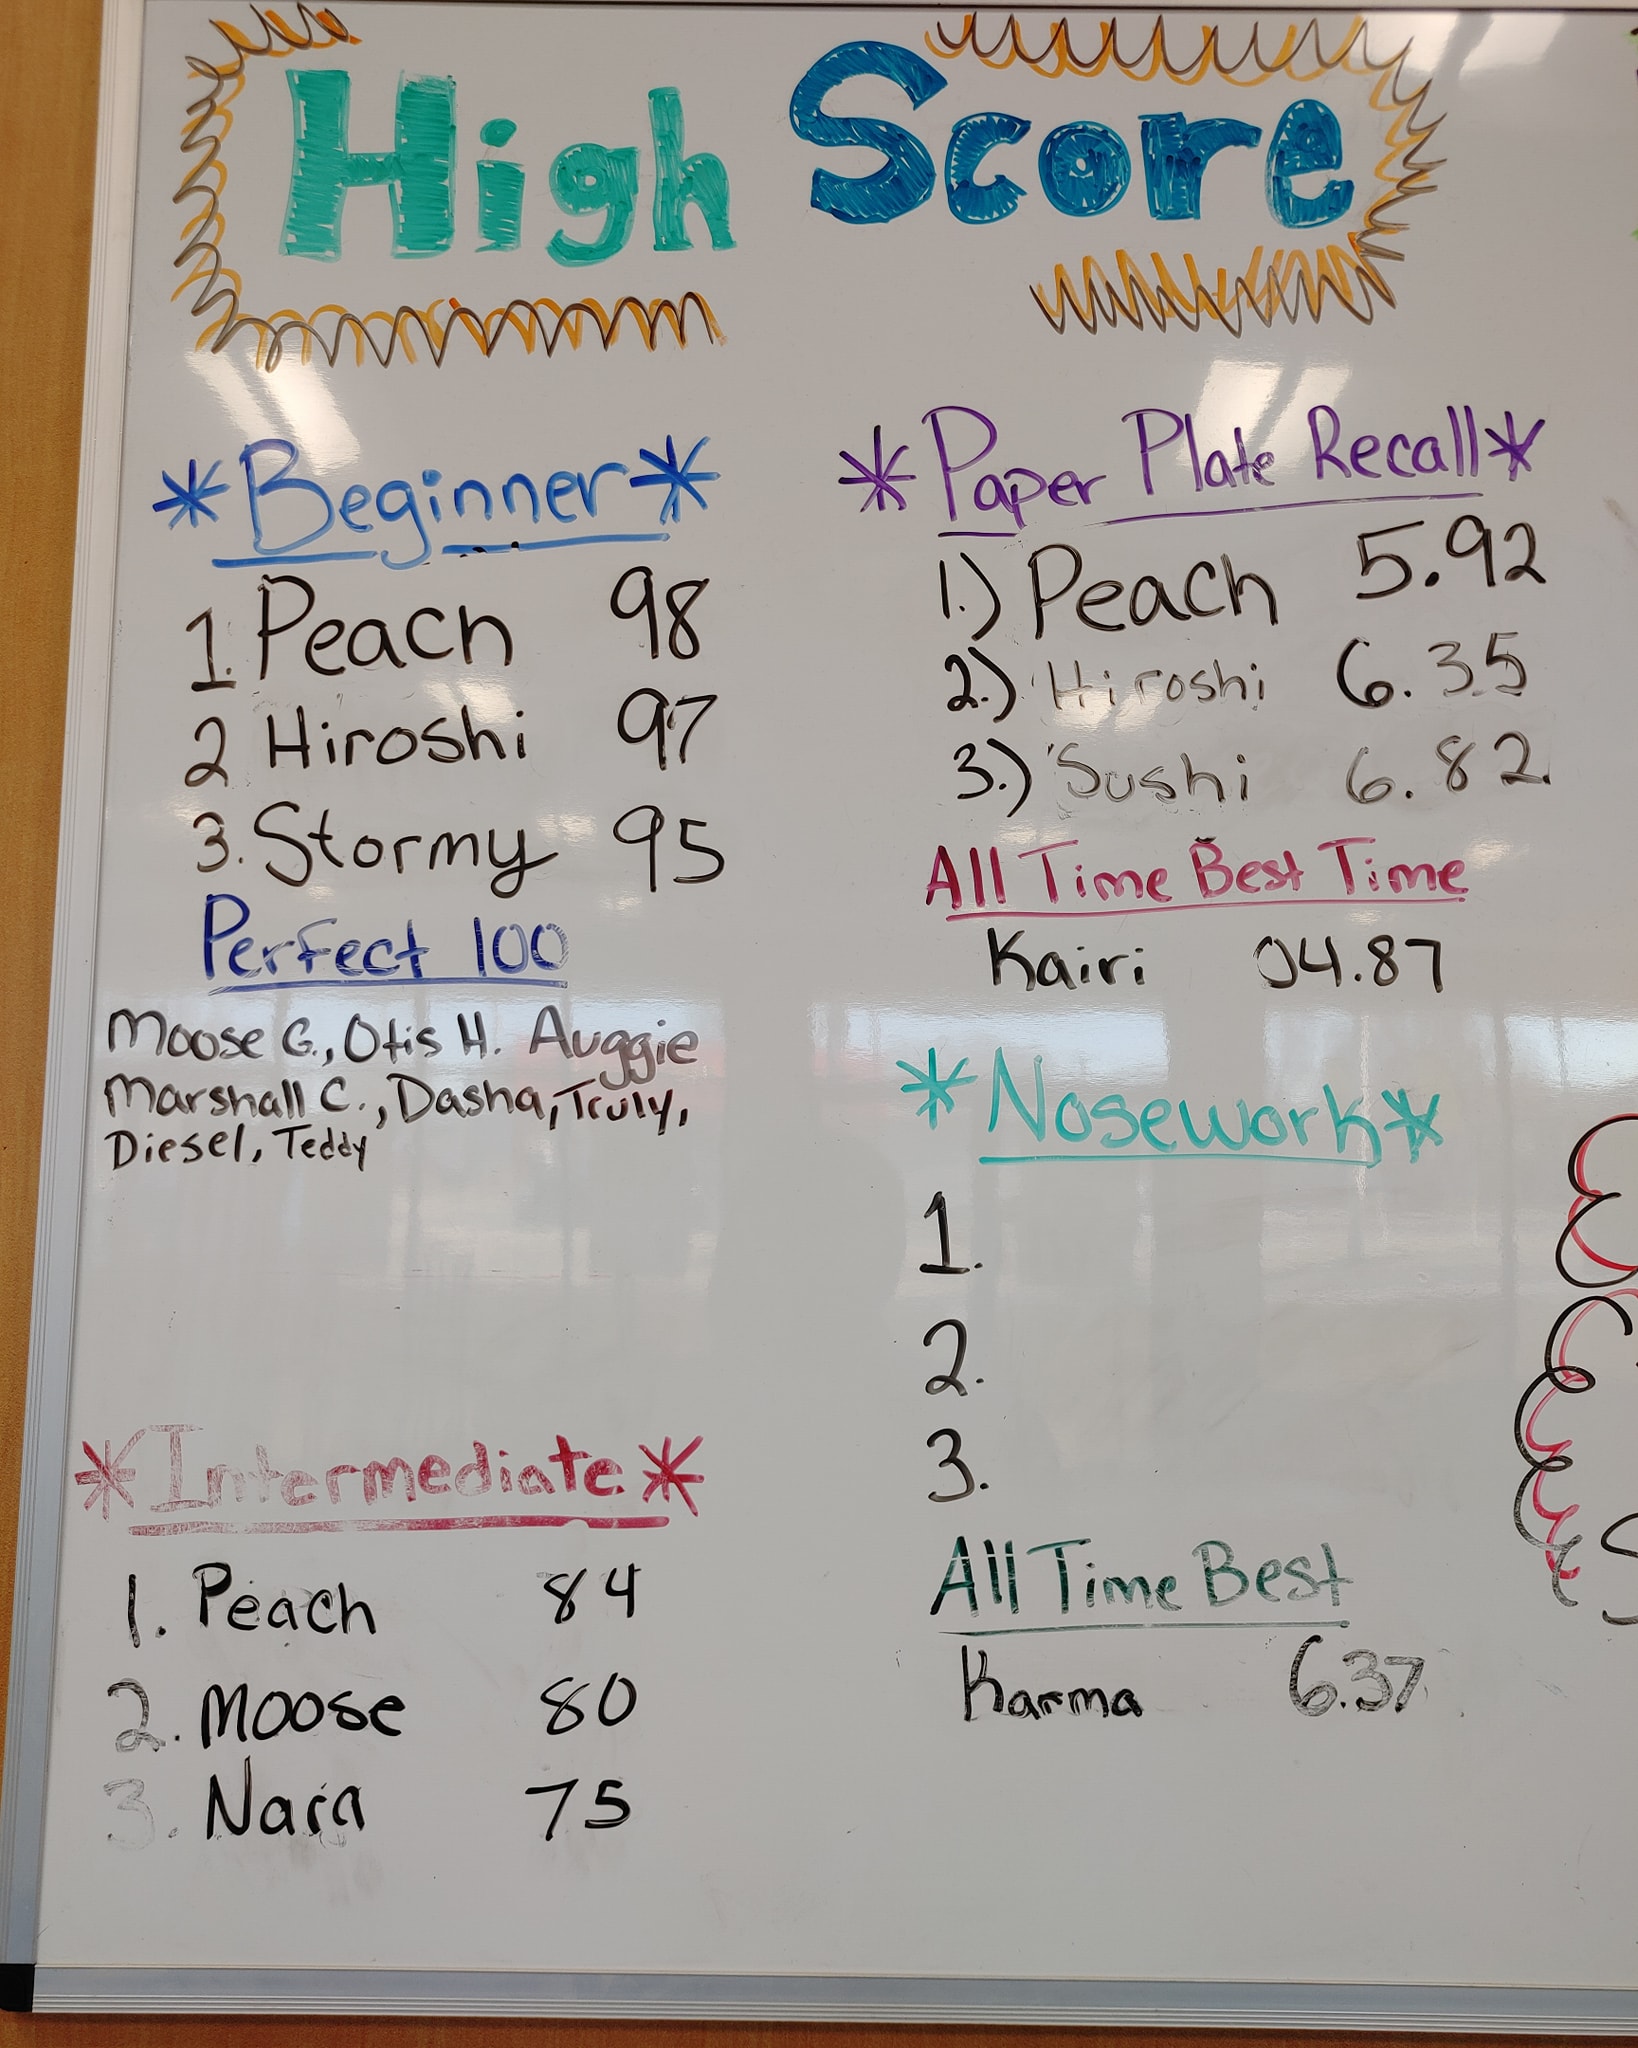 High Score
*Beginner*
1. Peach 98
2 Hiroshi 97
3. Stormy 95
Perfect 100
Moose G., Otis H. Auggie
Marshall C., Dasha, Truly,
Diesel, Teddy
*Intermediate*
1. Peach 84
2. Moose 80
3. Nara 75
*Paper Plate Recall*
1.) Peach 5.92
2.) Hiroshi 6.35
3.) Sushi 6.82
All Time Best Time
Kairi 04.87
*Nosework*
1.
2.
3.
All Time Best
Karma 6.37